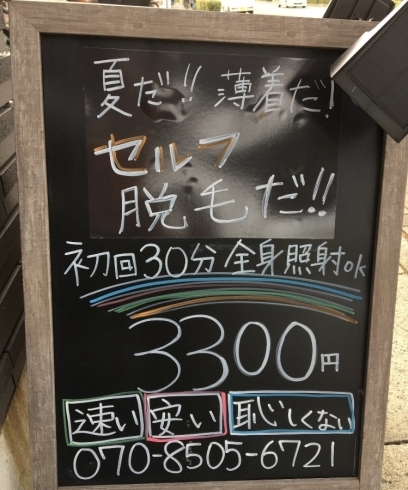 夏だ!! 薄着だ!
セルフ
脱毛だ!!
初回30分 全身照射ok
3300円
速い 安い 恥しくない
070-8505-6721